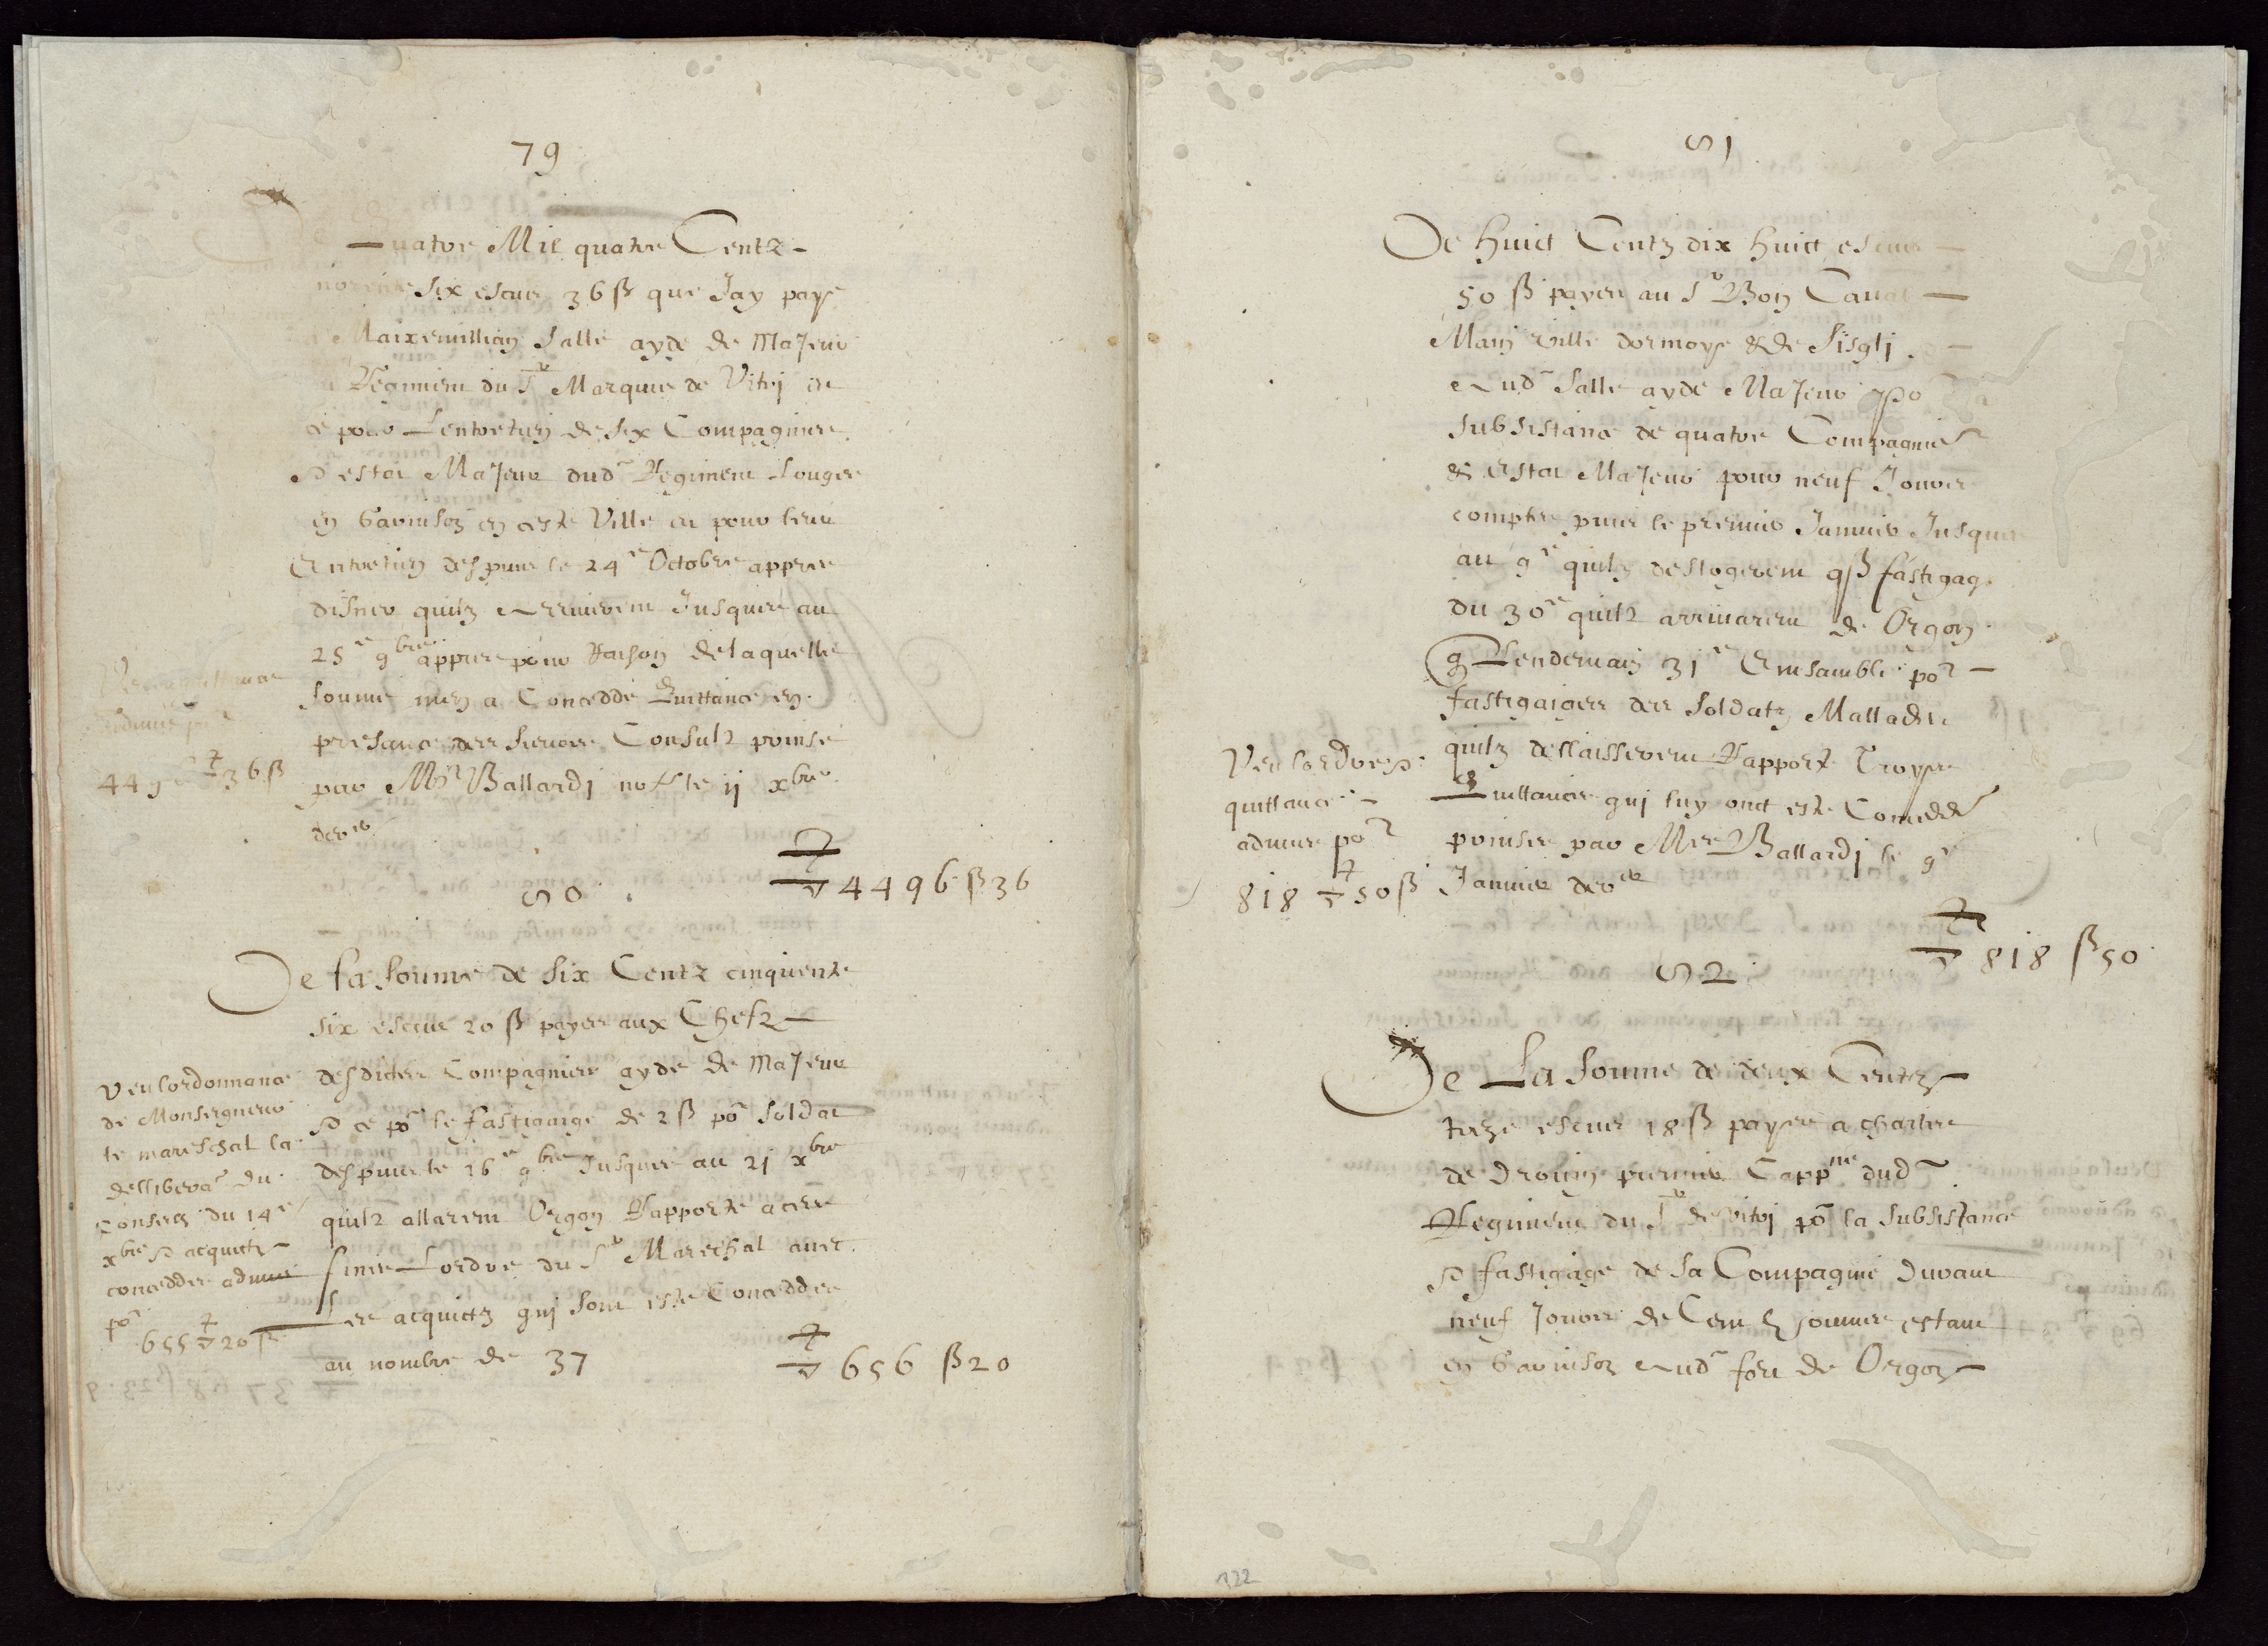 79
De quatre Mil quatre Centz
nonente six escus 36 ß que Jay paye
a Maixemillian Salle ayde de Majeur
au Regiment du Sr Marquis de Vitri et
ce pour Lentretien de six Compagnies
& estat Majeur dud Regiment Louges
en Garnison en ceste Ville et pour leur
Entretien despuis le 24e Octobre appres
disner quilz Arriverent Jusques au
25e 9bre appres pour Raison de laquelle
somme men a Conceddé Quittance en
presance des sieurs Consulz prinse
par Mr Ballardj nore le ij xbre
der
▽ 4496 ß 36
quittance
admis po
449 ▽ 36 ß
80
De la somme de six Centz cinquente
six escus 20 ß payes aux Chefz
desdictes Compagnies ayde de Majeur
& ce po le fastigaige de 2 ß po soldat
despuis le 16e 9bre Jusques au 21 xbre
quilz allarent Orgon Rapporte a ces
fins Lordre du Sr Marechal avec
Les acquictz qui sont este Conceddes
au nombre de 37
▽ 656 ß 20
Veu lordonnance
de Monseigneur
le mareschal la
dellibera du
Conseil du 14e
xbre & acquictz
conceddes admis
po
655 ▽ 20 ß
81
De huict Centz dix huict escus
50 ß payes au Sr Bon Caval
Main ville dormoyse & de Sisglj
Aud Salle ayde Majeur po la
subsistance de quatre Compagnies
& Estat Majeur pour neuf Jours
comptes puis le premier Janvier Jusques
au 9e quilz deslogerent fastigag
du 30e quilz arrivarent de Orgon
& Lendemain 31e Ensamble por
fastigaiges des soldatz Mallades
quilz dellaisserent Rapporte Troyse
Quittances quj luy ont este Conceddes
prinses par Mre Ballardj le 9e
Janvier der
▽ 818 ß 50
Veu lordre &
quittance
admis por
818 ▽ 50 ß
82
De La somme de deux Centz
treze escus 18 ß payes a charles
de Drouin premier Cappne dud
Regiment du Sr de vitrj po la subsistance
& fastigage de sa Compagnie Durant
neuf Jours de Cent hommes estant
en Garnison Aud fort de Orgon
122